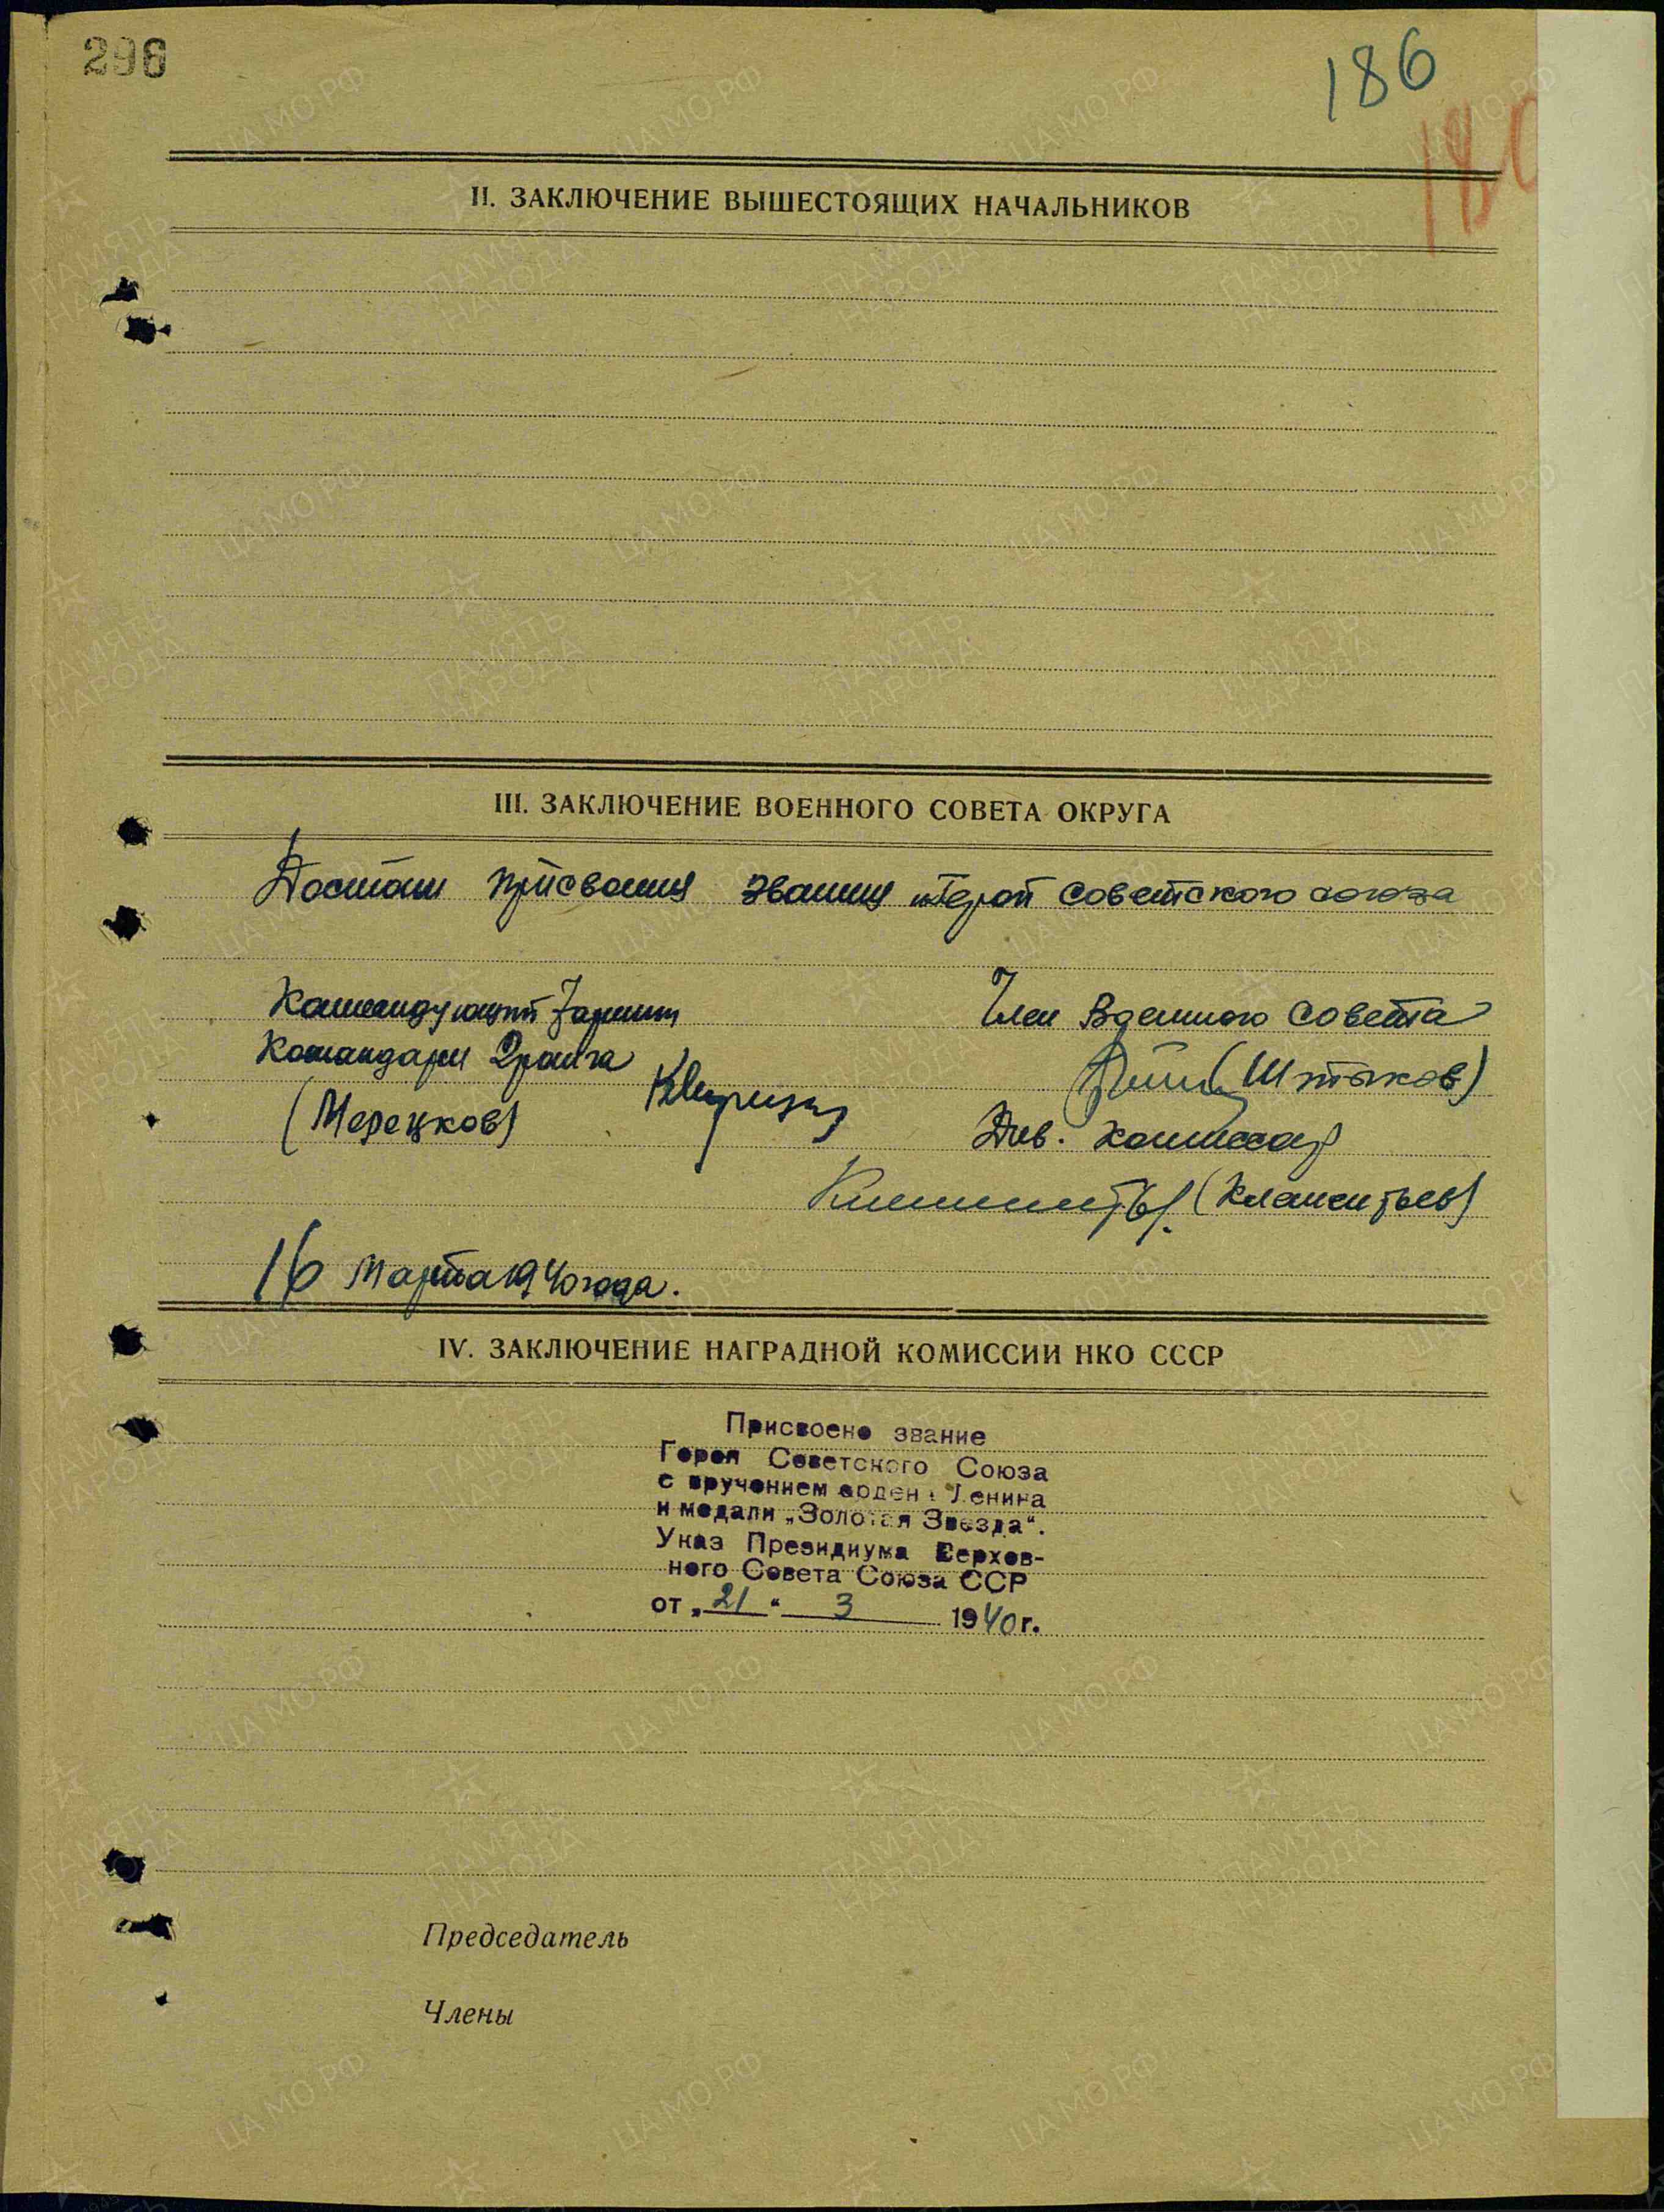 296
186
180
II. ЗАКЛЮЧЕНИЕ ВЫШЕСТОЯЩИХ НАЧАЛЬНИКОВ
III. ЗАКЛЮЧЕНИЕ ВОЕННОГО СОВЕТА ОКРУГА
Достоин присвоения звания „Герой советского союза
Командующий 7 армии
Член Военного Совета
Командарм 2 ранга
(Штыков)
(Мерецков)
Див. комиссар
(Клементьев)
16 марта 1940 года.
IV. ЗАКЛЮЧЕНИЕ НАГРАДНОЙ КОМИССИИ НКО СССР
Присвоено звание
Героя Советского Союза
с вручением ордена Ленина
и медали „Золотая Звезда“.
Указ Президиума Верхов-
ного Совета Союза ССР
от „21“ 3 1940 г.
Председатель
Члены